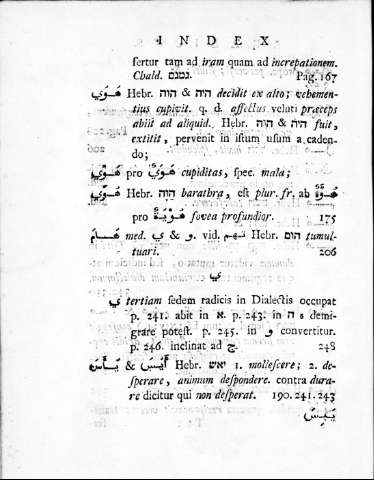 INDEX
fertur tam ad iram quam ad increpationem.
Chald. גמגם. Pag. 167
هَوَي Hebr. הוה & היה decidit ex alto; vehemen-
tius cupivit. q. d. affectus veluti præceps
abiit ad aliquid. Hebr. הוה & היה fuit,
extitit, pervenit in istum usum a caden-
do;
pro cupiditas, spec. mala;
Hebr. הוה barathra, est plur. fr. ab
pro fovea profundior. 175
med. و & ي. vid. Hebr. הום tumul-
tuari. 206
ي
ي tertiam sedem radicis in Dialectis occupat
p. 241. abit in א. p. 243. in ה s demi-
grare potest. p. 245. in و convertitur.
p. 246. inclinat ad ج. 248
يَأَسَ & أَيَسَ Hebr. יאש 1. mollescere; 2. de-
sperare, animum despondere. contra dura-
re dicitur qui non desperat. 190. 241. 243